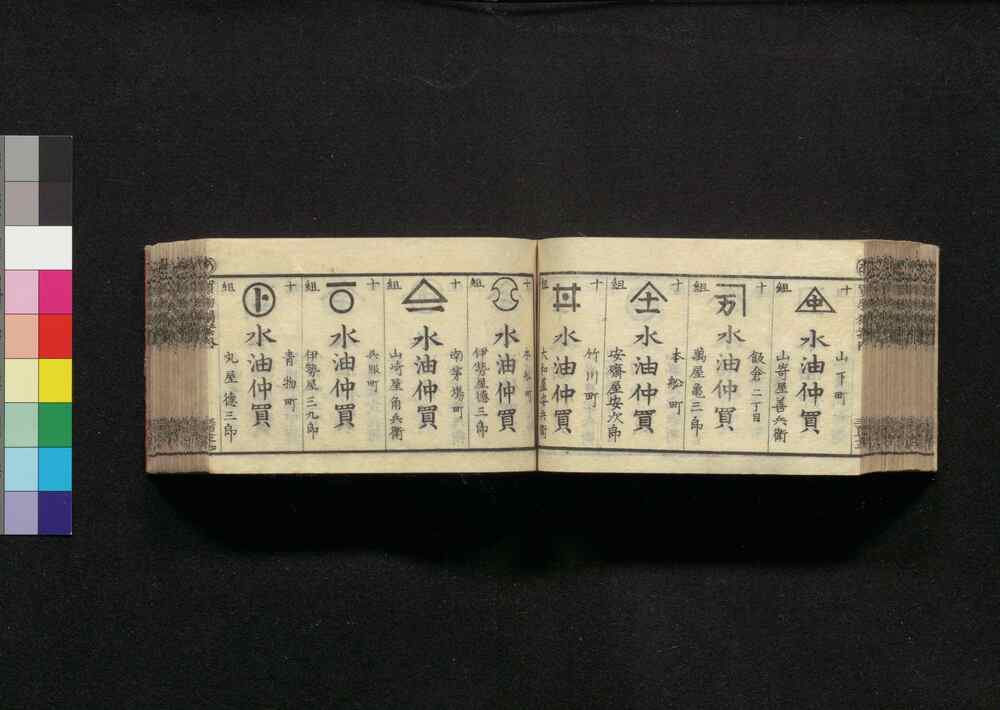 十組
山下町
水油仲買
山嵜屋善兵衛
十組
飯倉二丁目
水油仲買
萬屋亀三郎
十組
本船町
水油仲買
安齋屋安次郎
十組
竹川町
水油仲買
大和屋安兵衛
十組
水油仲買
伊勢屋徳三郎
十組
南茅場町
水油仲買
山崎屋角兵衛
十組
呉服町
水油仲買
伊勢屋三九郎
十組
青物町
水油仲買
丸屋徳三郎